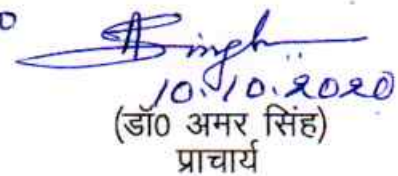 Singh
10.10.2020
(डॉ0 अमर सिंह)
प्राचार्य